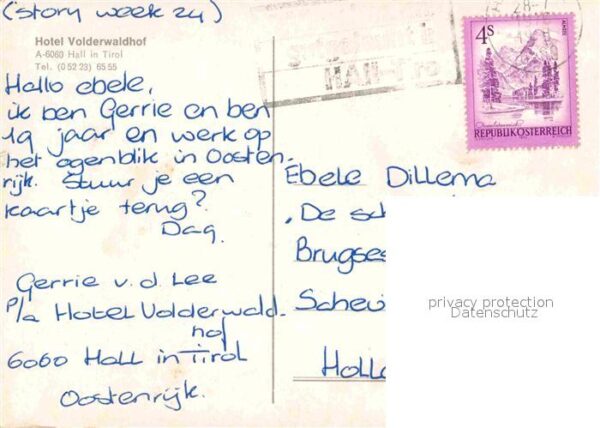 (story week 24)
Hotel Volderwaldhof
A-6060 Hall in Tirol
Tel. (0 52 23) 65 55
Hallo ebele,
ik ben Gerrie en ben
19 jaar en werk op
het ogenblik in Oosten-
rijk. Stuur je een
kaartje terug?
Dag.
Gerrie v.d. Lee
P/a Hotel Volderwald-
hof
6060 Hall in Tirol
Oostenrijk.
4s
ALMSEE
REPUBLIK ÖSTERREICH
28-
HALL
Ebele Dillema
"De sch
Brugses
Schev
Holl
privacy protection
Datenschutz